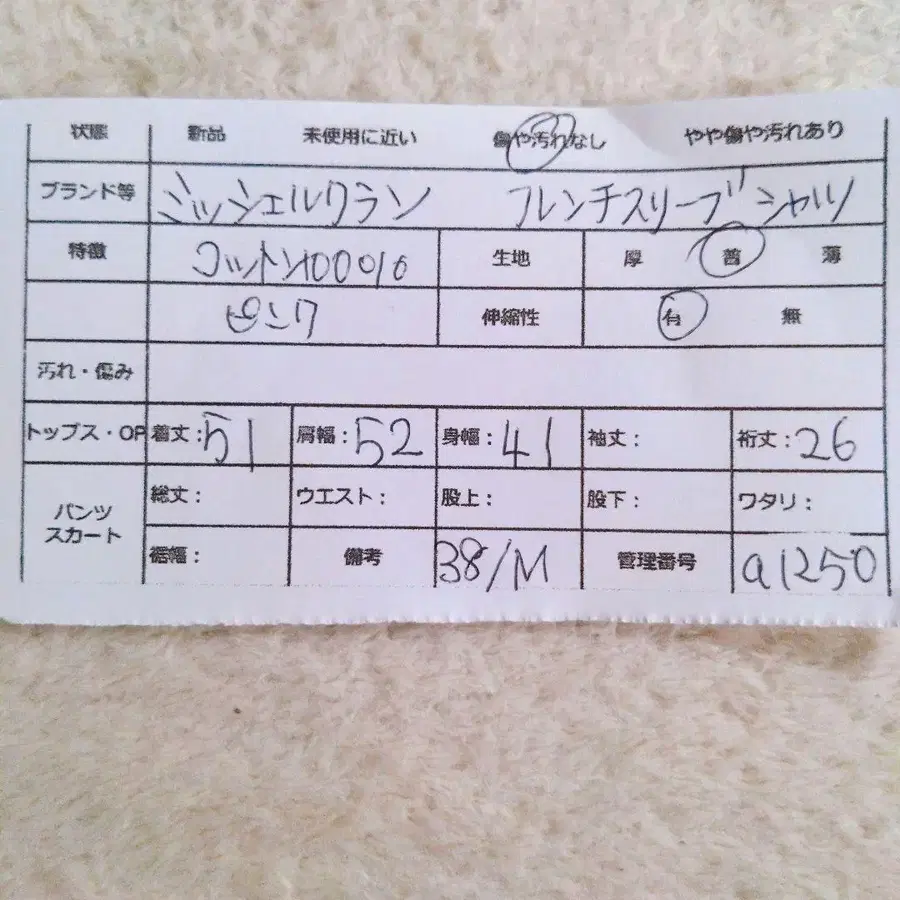 状態 新品 未使用に近い 傷や汚れなし やや傷や汚れあり
ブランド等 ミッシェルクラン フレンチスリーブシャツ
特徴 コットン100% 生地 厚 普 薄
ピンク 伸縮性 有 無
汚れ・傷み
トップス・OP 着丈:51 肩幅:52 身幅:41 袖丈: 裄丈:26
パンツ スカート 総丈: ウエスト: 股上: 股下: ワタリ:
裾幅: 備考 38/M 管理番号 a1250